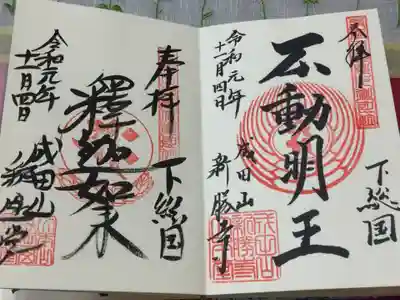 奉拝
下総国
不動明王
令和元年
十一月四日
成田山
新勝寺
奉拝
下総国
釋迦如来
令和元年
十一月四日
成田山
釈迦堂